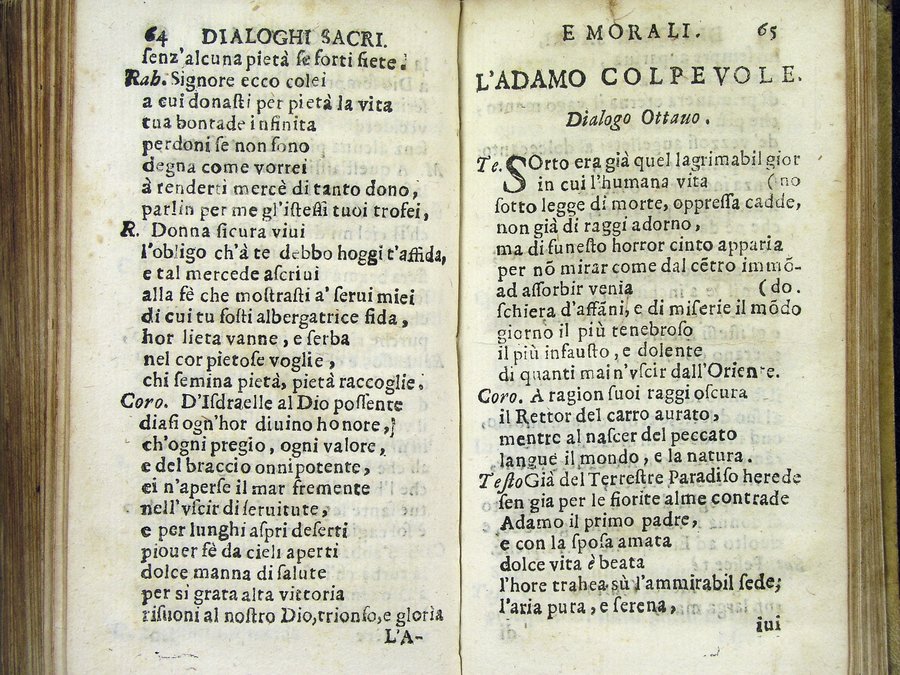 64 DIALOGHI SACRI.
senz'alcuna pietà se forti siete.
Rab. Signore ecco colei
a cui donasti per pietà la vita
tua bontade infinita
perdoni se non sono
degna come vorrei
à renderti mercè di tanto dono,
parlin per me gl'istessi tuoi trofei,
R. Donna sicura viui
l'obligo ch'à te debbo hoggi t'affida,
e tal mercede ascriui
alla fè che mostrasti a' serui miei
di cui tu fosti albergatrice fida,
hor lieta vanne, e serba
nel cor pietose voglie,
chi semina pietà, pietà raccoglie.
Coro. D'Isdraelle al Dio possente
diasi ogn'hor diuino honore,
ch'ogni pregio, ogni valore,
e del braccio onnipotente,
ei n'aperse il mar fremente
nell'vscir di seruitute,
e per lunghi aspri deserti
piouer fè da cieli aperti
dolce manna di salute
per si grata alta vittoria
risuoni al nostro Dio, trionfo, e gloria
L'A-
E MORALI. 65
L'ADAMO COLPEVOLE.
Dialogo Ottauo.
Te. SOrto era già quel lagrimabil gior
in cui l'humana vita (no
sotto legge di morte, oppressa cadde,
non già di raggi adorno,
ma di funesto horror cinto apparia
per nō mirar come dal cētro immō-
ad assorbir venia (do.
schiera d'affāni, e di miserie il mōdo
giorno il più tenebroso
il più infausto, e dolente
di quanti mai n'vscir dall'Oriente.
Coro. A ragion suoi raggi oscura
il Rettor del carro aurato,
mentre al nascer del peccato
langue il mondo, e la natura.
Testo Già del Terrestre Paradiso herede
sen gia per le fiorite alme contrade
Adamo il primo padre,
e con la sposa amata
dolce vita è beata
l'hore trahea sù l'ammirabil sede;
l'aria pura, e serena,
iui